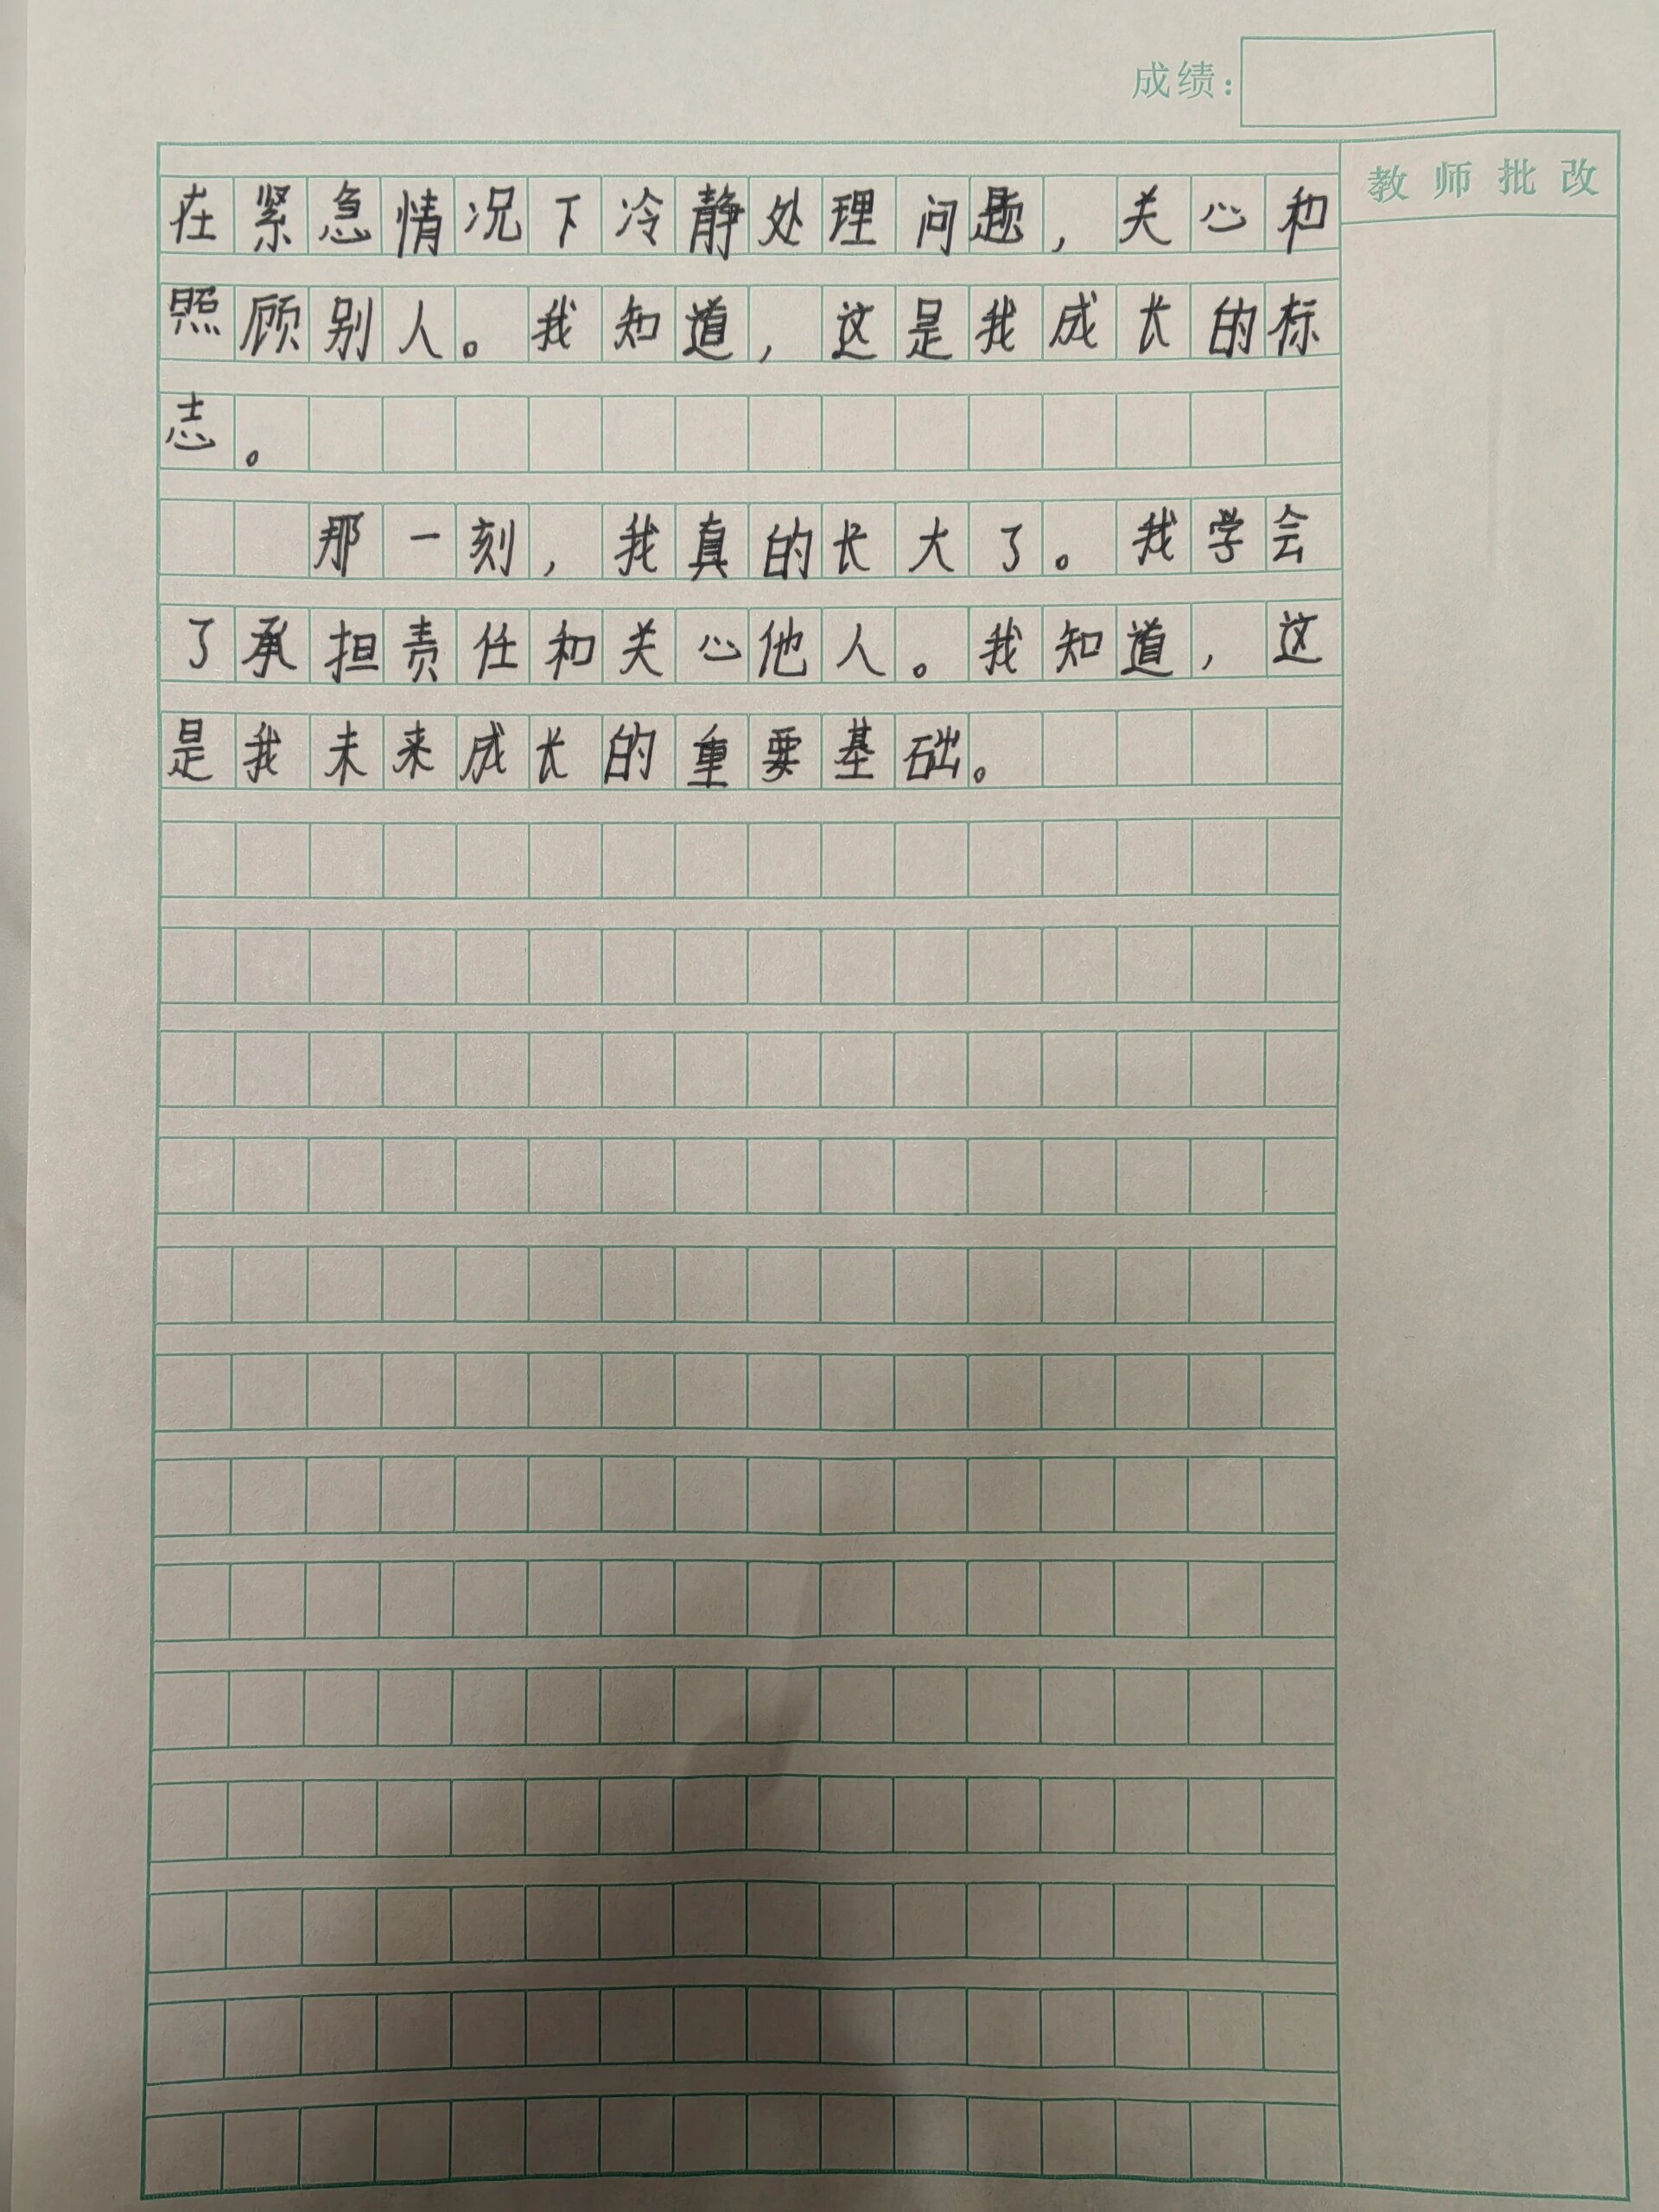 成绩：
教师批改
在紧急情况下冷静处理问题，关心和
照顾别人。我知道，这是我成长的标
志。
那一刻，我真的长大了。我学会
了承担责任和关心他人。我知道，这
是我未来成长的重要基础。